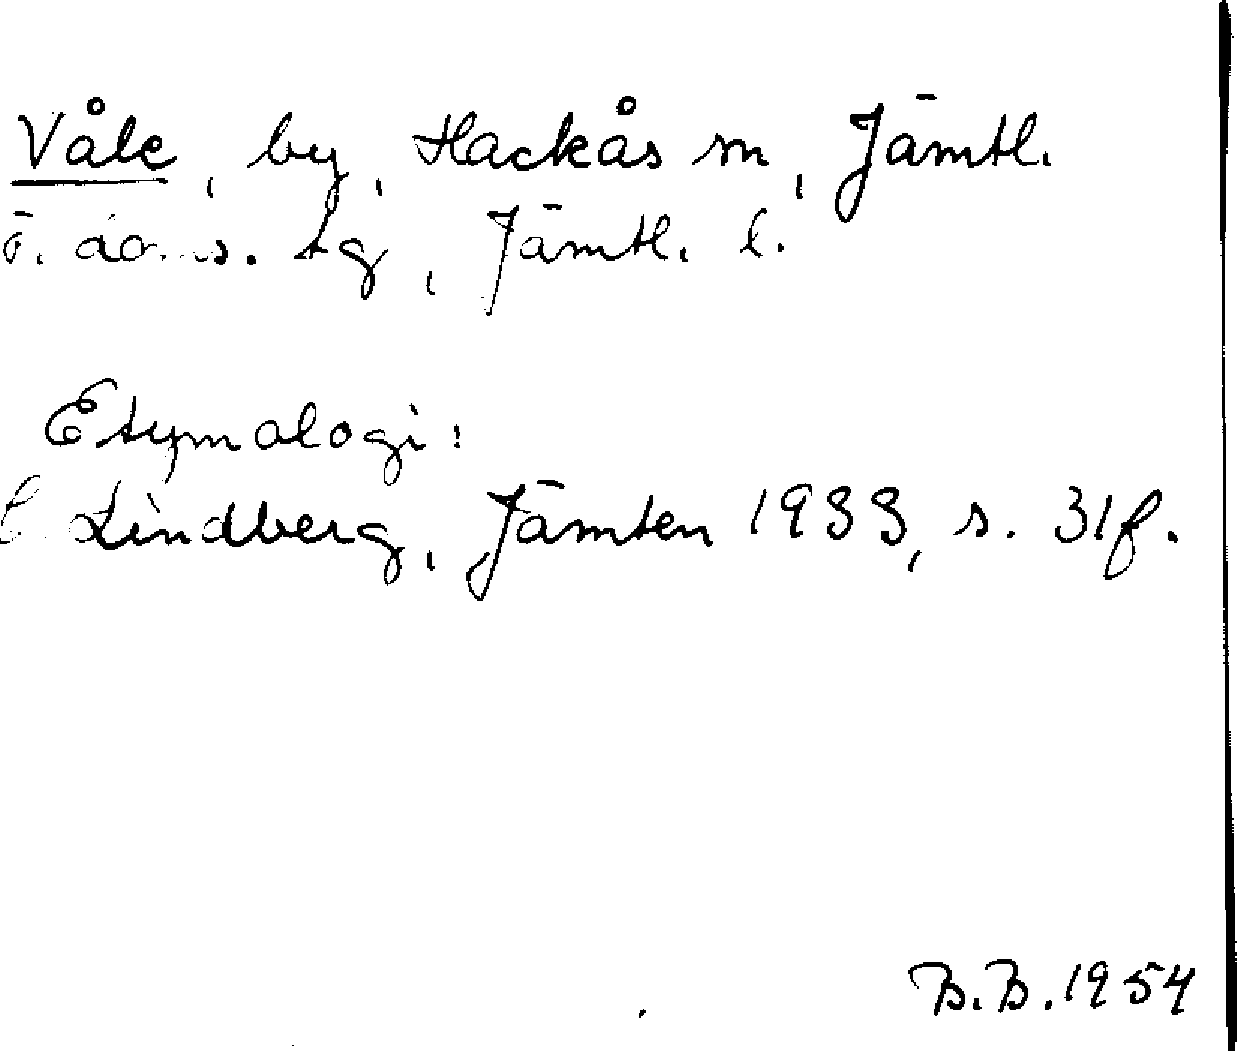 Våle, by, Hackås sn, Jämtl.
s. tg, Jämtl. l.
Etymologi:
Lindberg, Jämten 1933, s. 31f.
B.B. 1954